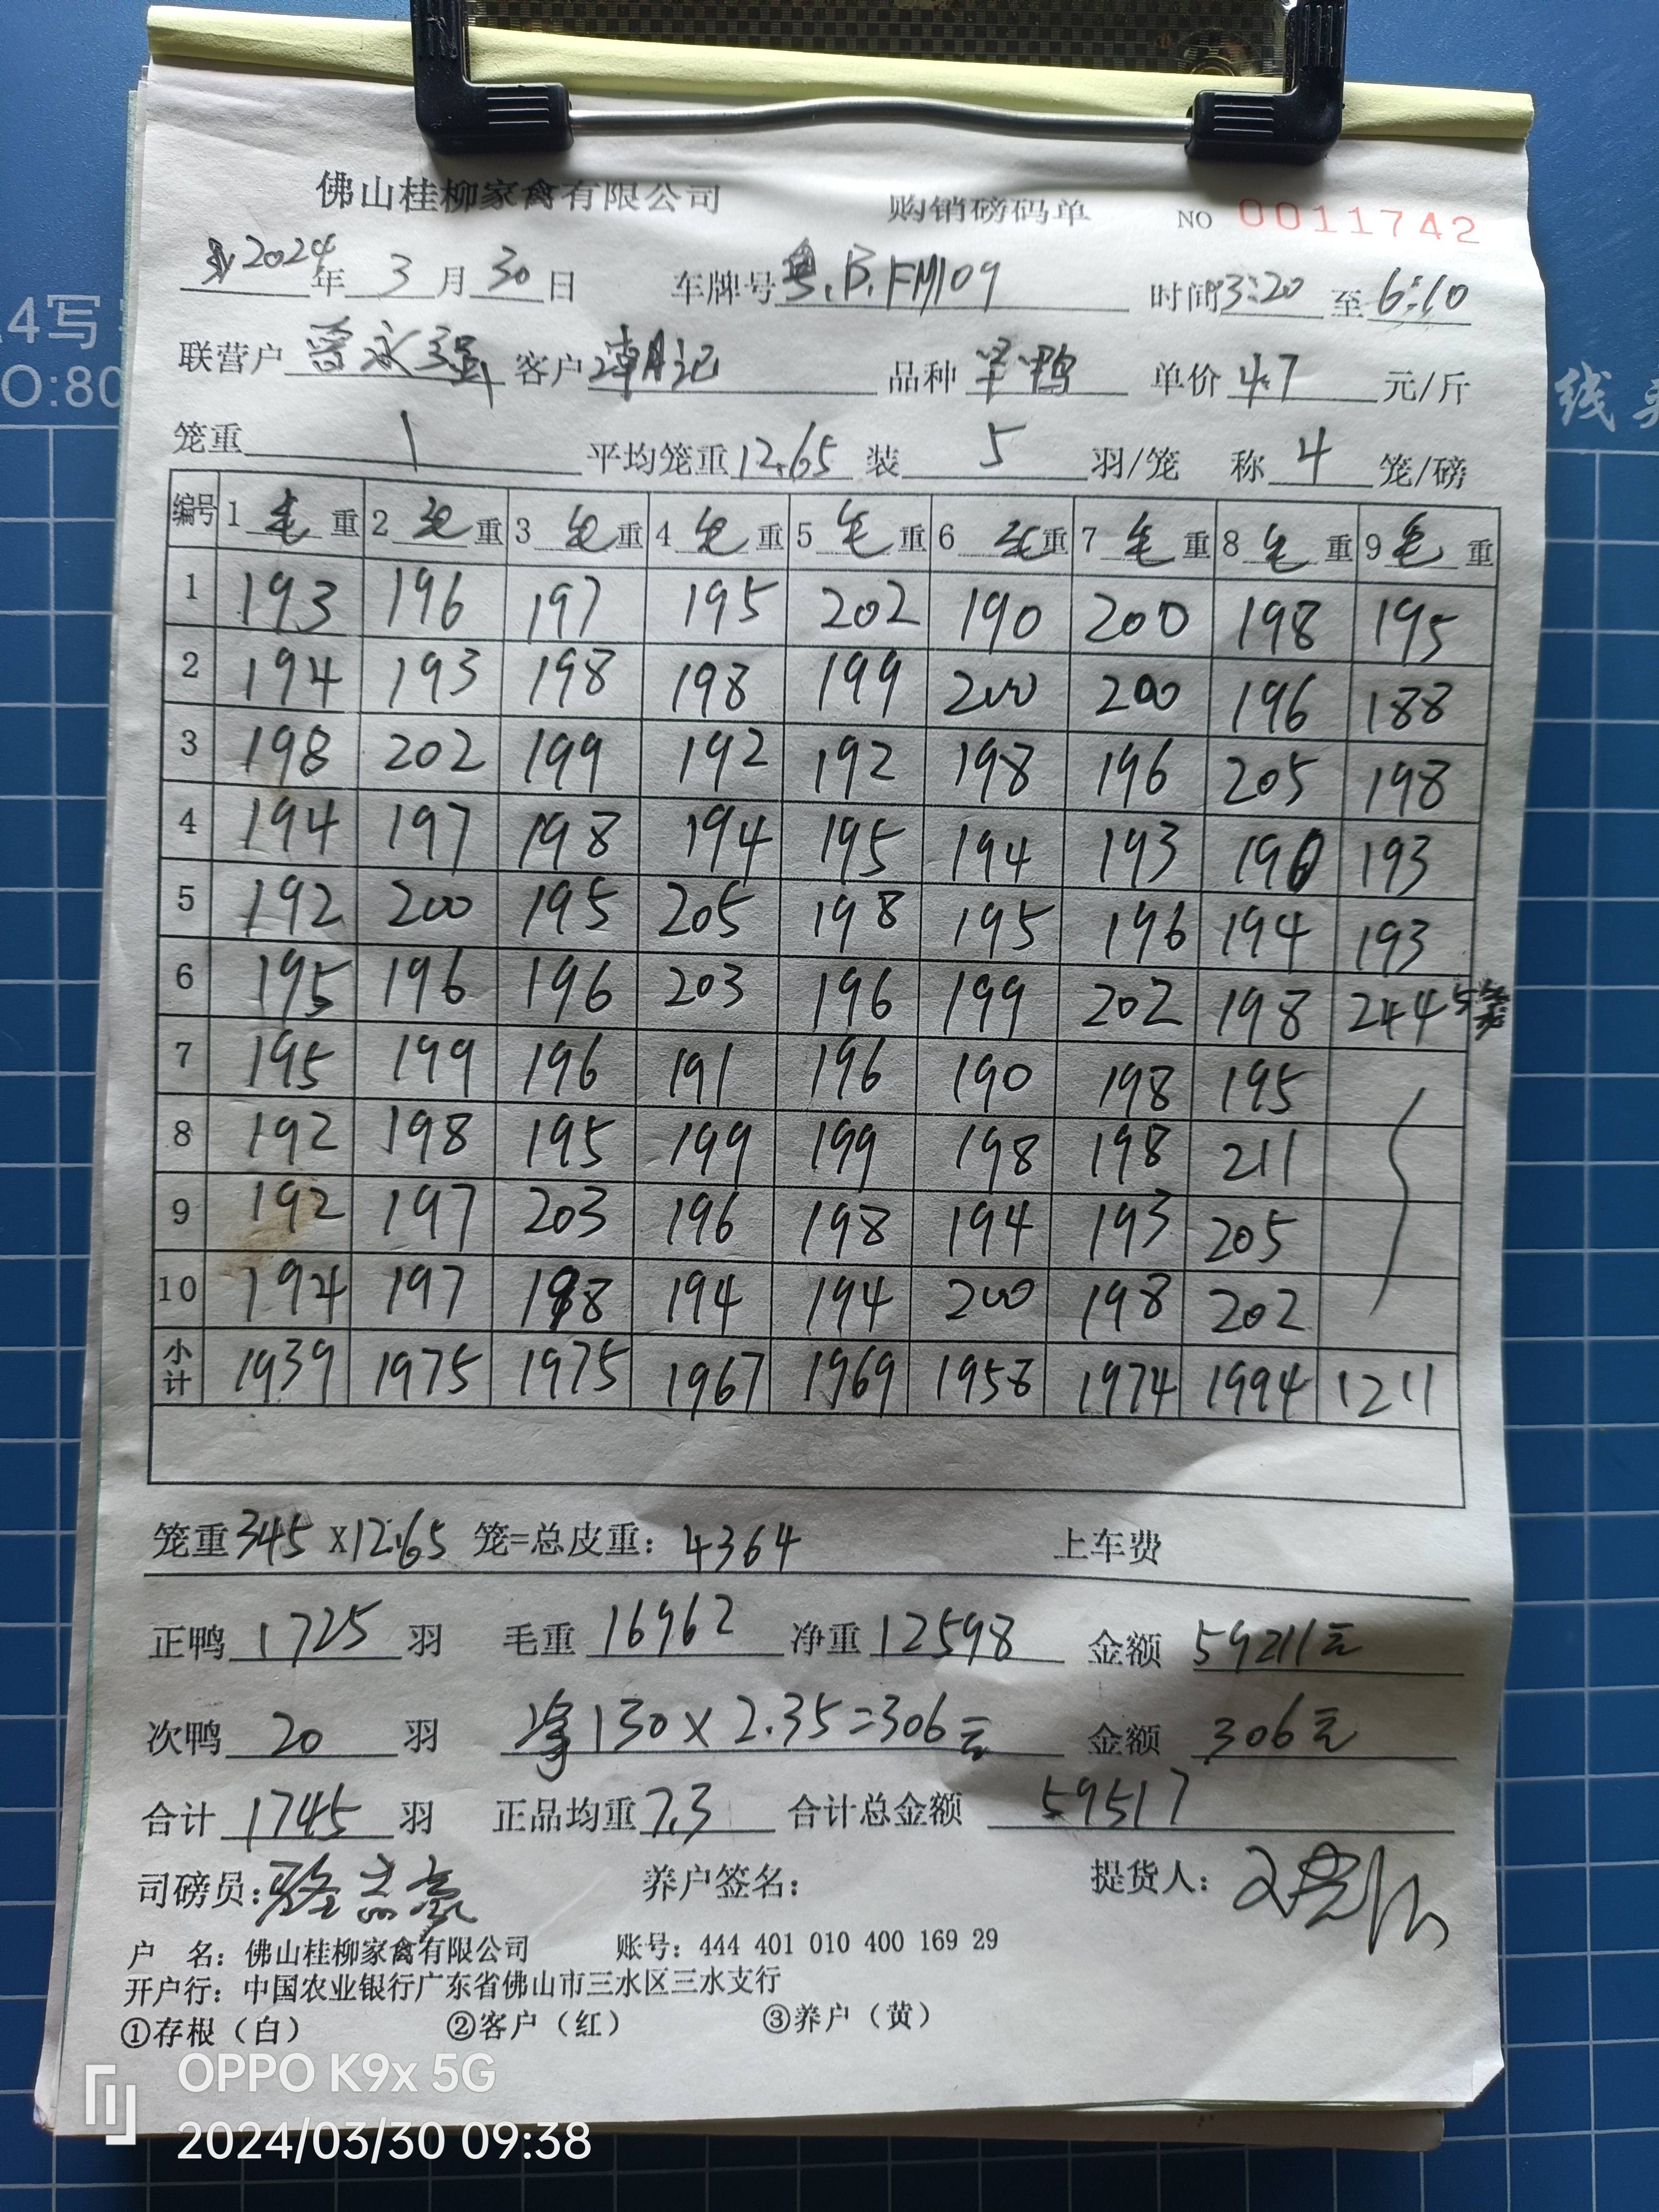 佛山桂柳家禽有限公司 购销磅码单 NO 0011742
2024年3月30日 车牌号粤.B.FM109 时间3:20至6:10
联营户曾永强 客户潮记 品种半鸭 单价4.7元/斤
笼重1 平均笼重12.65 装5羽/笼 称4笼/磅
编号 1毛重 2毛重 3毛重 4毛重 5毛重 6毛重 7毛重 8毛重 9毛重
1 193 196 197 195 202 190 200 198 195
2 194 193 198 198 199 200 200 196 188
3 198 202 199 192 192 198 196 205 198
4 194 197 198 194 195 194 193 190 193
5 192 200 195 205 198 195 196 194 193
6 195 196 196 203 196 199 202 198 244 5笼
7 195 199 196 191 196 190 198 195
8 192 198 195 199 199 198 198 211
9 192 197 203 196 198 194 193 205
10 194 197 198 194 194 200 198 202
小计 1939 1975 1975 1967 1969 1958 1974 1994 1211
笼重345X12.65笼=总皮重：4364 上车费
正鸭1725羽 毛重16962 净重12598 金额59211元
次鸭20羽 净130×2.35=306元 金额306元
合计1745羽 正品均重7.3 合计总金额59517
司磅员：骆志豪 养户签名： 提货人：
户 名：佛山桂柳家禽有限公司 账号：444 401 010 400 169 29
开户行：中国农业银行广东省佛山市三水区三水支行
①存根（白） ②客户（红） ③养户（黄）
A4写
O:80
线
OPPO K9x 5G
2024/03/30 09:38